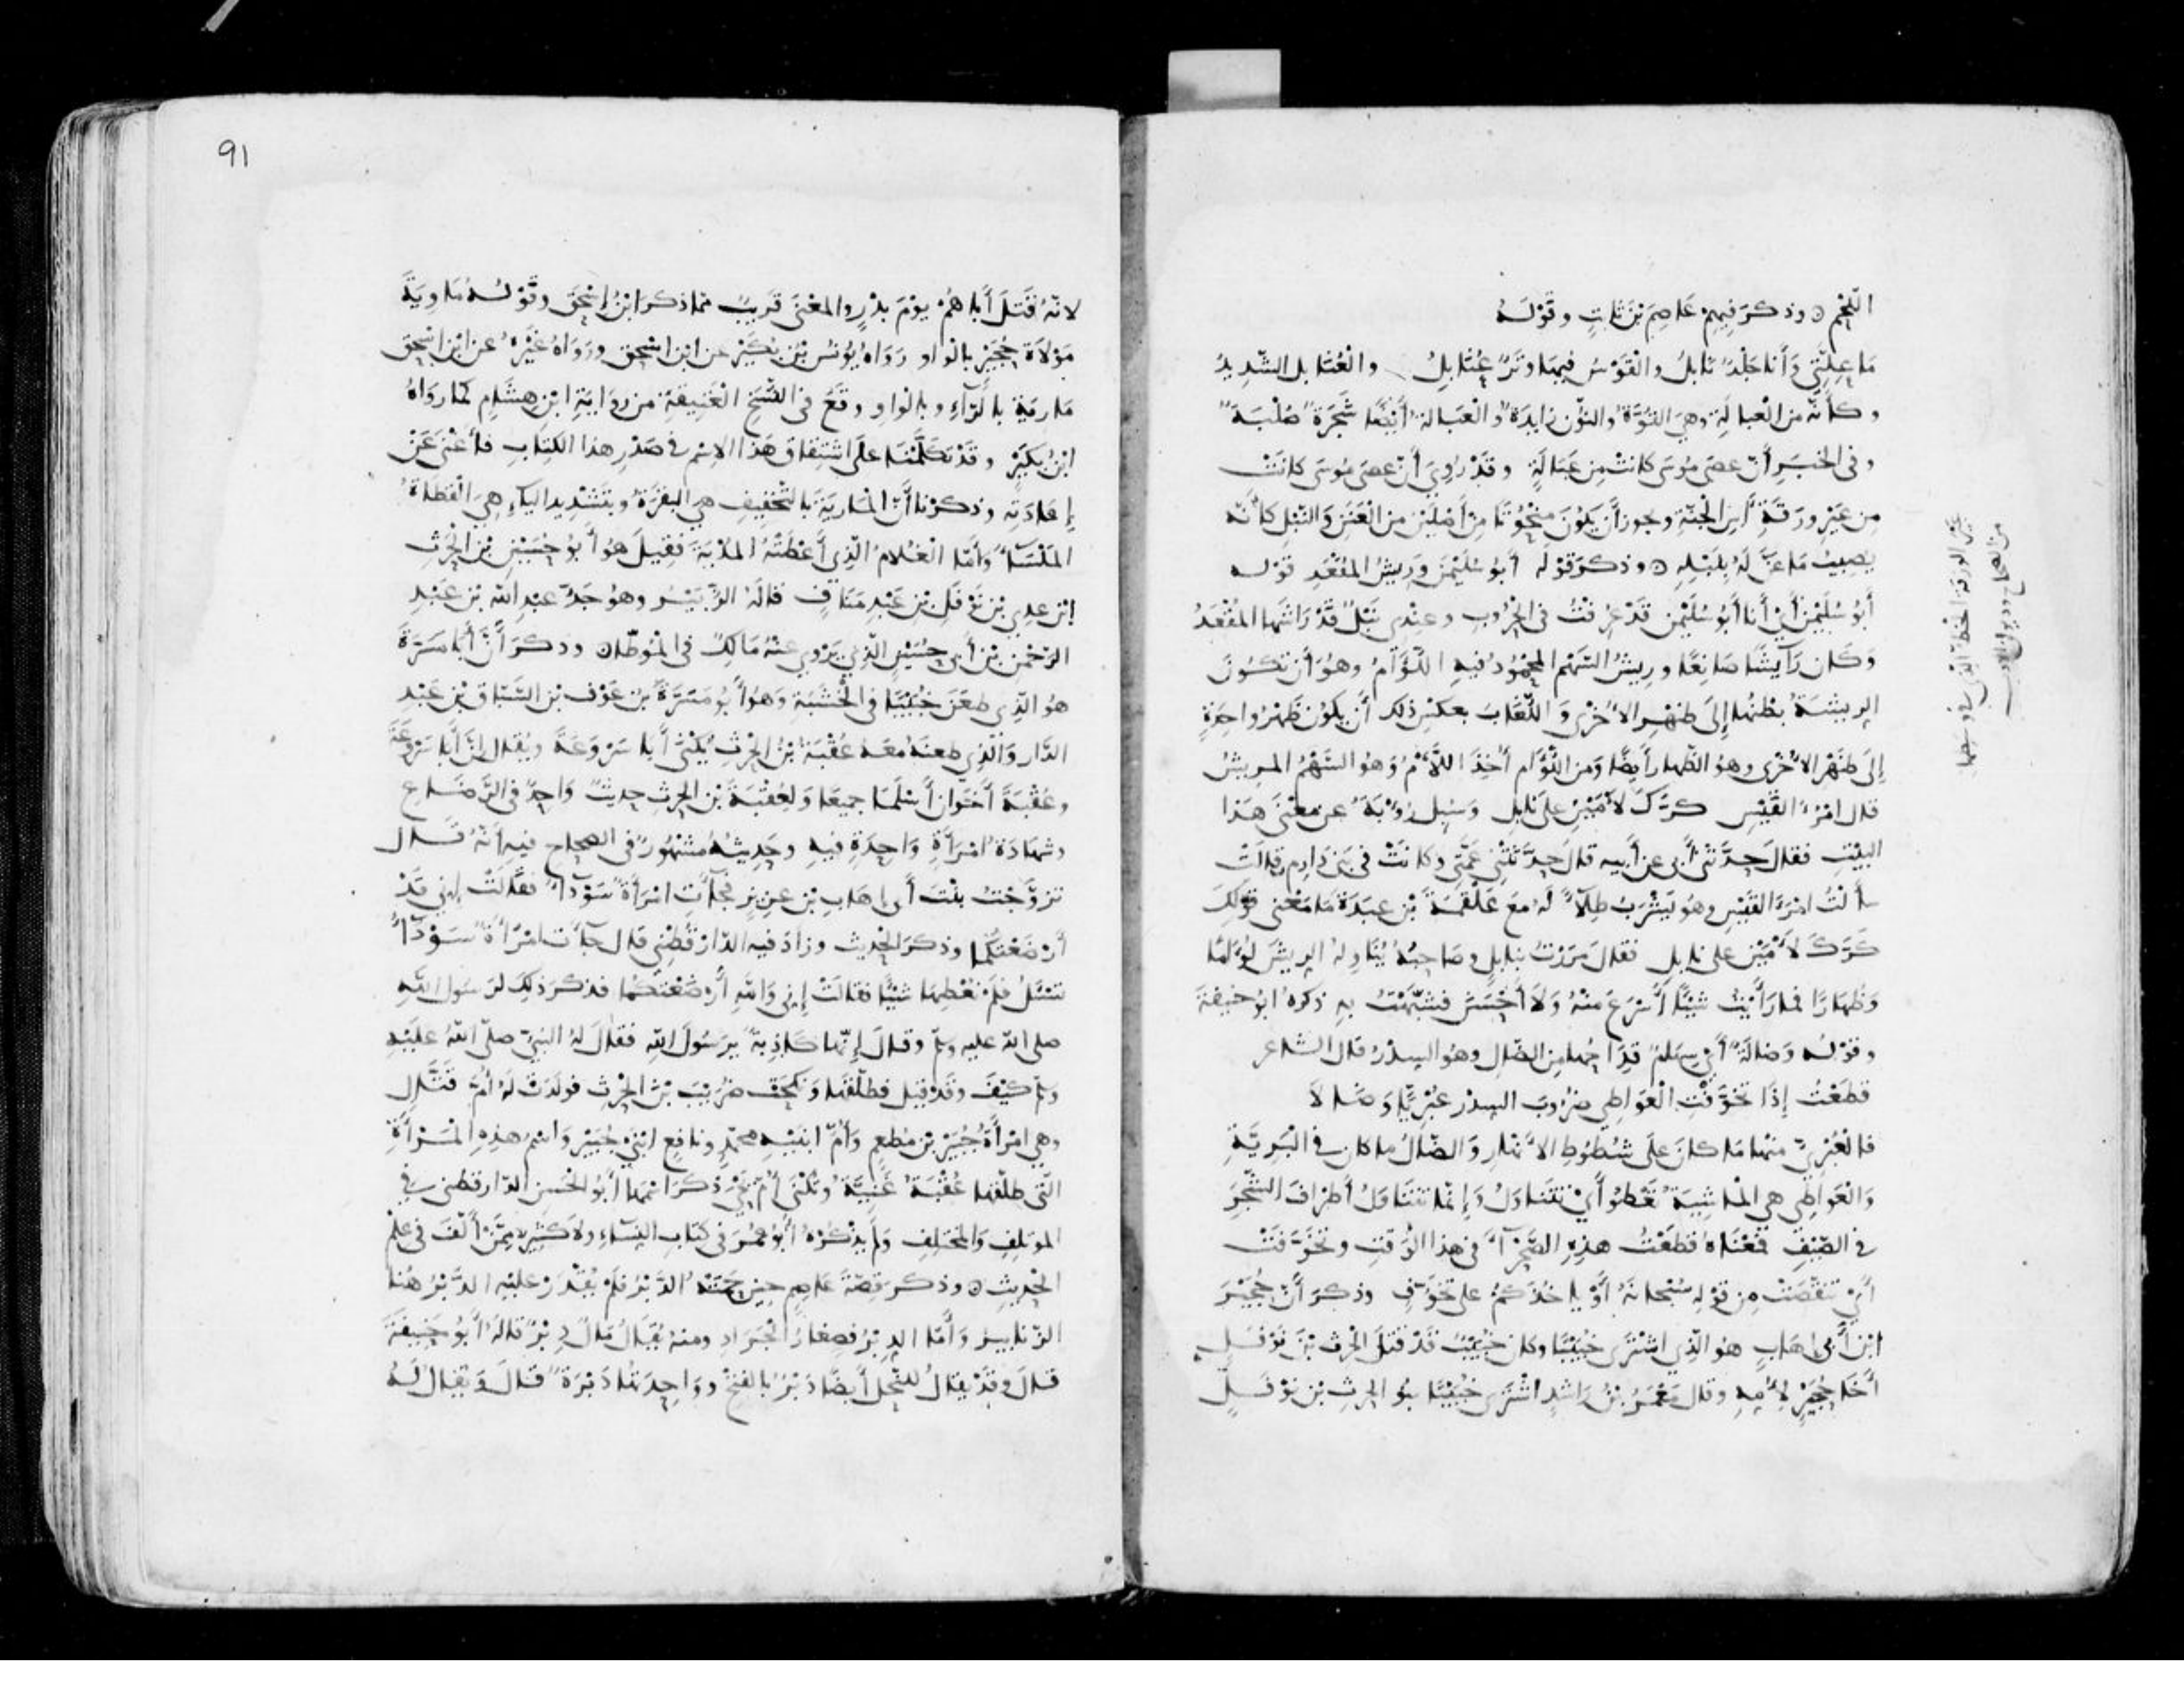 اللَّخْمِ ۞ وذكر فيهم عَاصِمَ بْنَ ثابتٍ وقَوْلَهُ
مَا عِلَّتِي وَأَنا جَلْدٌ نَابلُ والقَوْسُ فيهَا وتَرٌ عُنَابِلُ والعُنَابل الشّديدُ
وكأنّه من العبالةِ وهي القوَّةُ والنّون زايدةٌ والعَبالة أيْضًا شَجَرَةٌ صُلْبَةٌ
وفى الخبَرِ أنّ عصَى مُوسَى كانتْ مِن عَبَالَةٍ وقَدْ رُوِيَ أنّ عصَى مُوسَى كانَتْ
مِن عَيْرِ ورَقَةِ آسِ الجنّةِ ويجوز أن يكُونَ مَنْحُوتًا مِنْ أصْلَيْنِ من العَنَنِ وَالنّبل كأنّه
يصيبُ مَا عَنَّ لَهُ بنَبْلِهِ ۞ وذكر قَوْلَه أبُو سُلَيْمٰنَ وَرِيشُ المُقْعَدِ قوْله
أبُو سُلَيْمٰنَ أىْ أنا أبُو سُلَيْمٰن قدْ عُرِفْتُ فى الحُرُوبِ وعِنْدِى نَبْلٌ قَدْ رَاشَهَا المُقْعَدُ
وَكَان رَآيشًا صَانِعًا ورِيشُ السّهْمِ المحْمُودُ فيهِ اللُّؤَامُ وهُوَ أن تكُونَ
الريشَةُ بطْنُهَا إلَى ظهْرِ الأُخْرَى وَاللُّغَابَ بعكسِ ذلك أن يكون ظَهْرُ واحِدَةٍ
إلَى ظَهْرِ الأخْرَى وهُو الظُّهار أيضًا وَمن اللُّؤَام أُخِذَ اللَّأْمُ وَهُو السّهْمُ المريشُ
قال امْرُؤُ القَيْسِ كَرَّكَ لأْمَيْنِ على نَابِلِ وَسُيِلَ رُؤْبَةُ عن معْنَى هَذا
البيْتِ فقالَ حدَّثنى أبى عن أبيه قالَ حدَّثَتْنِى عمَّتى وكانَتْ فى بَنى دَارِمٍ قالَتْ
سألْتُ امْرَأَ القَيْسِ وهُو يَشْرَبُ طِلآءً لَهُ معَ عَلْقمَةَ بْن عبَدَةَ مَا مَعْنى قَوْلِكَ
كَرَّكَ لأْمَيْنِ على نابل فقالَ مَرَرْتُ بنابلٍ وصَاحِبُهُ يُنَاوِلُهُ الريشَ لُؤَامًا
وَظُهَارًا فمَا رَأَيْتُ شيْئًا أَسْرَعَ منْهُ وَلاَ أحْسَنَ فشبَّهْتُ بهِ ذكره ابُو حنيفَةَ
وقوْله وَضالَةٌ أى سِهَامٌ قِدَاحُهَا مِن الضّالِ وهُو السِدْرُ قال الشاعر
قطَعْتُ إذَا تخَوَّفَتِ العَوَاطِى ضُرُوبَ السِدر عُبْرِيًّا وَضَالاَ
فالعُبْرىُّ منهَا مَا كانَ علَى شُطُوطِ الأنهَارِ وَالضّالُ ما كان فى البَريَّةِ
وَالعَوَاطِى هى الماشِيَةُ تعْطُو أىْ تتَنَاوَلُ وَإنَّمَا تتَنَاوَلُ أطرَافَ الشّجَرِ
فى الصّيْفِ فمَعْنَاهُ قطَعْتُ هذِهِ الصّحْرآءَ فى هذا الوَقتِ وتخَوَّفَتْ
أىْ تنَقّصَتْ مِن قوْلِه سُبْحَانَهُ أوْ ياخُذَكُمْ على تخَوُّفٍ وذكرَ أنّ حُجَيْرَ
ابْنَ أَبى إهَابٍ هو الّذِى اشْتَرَى خُبَيْبًا وكان خُبَيْبٌ قَدْ قتَلَ الحٰرِثَ بْنَ نَوْفَلٍ
أخَا حُجَيْرٍ لأُمِّهِ وقال مَعْمَرُ بْنُ رَاشِدٍ اشْترَى خُبَيْبًا بنو الحٰرِثِ بْنِ نوْفَلٍ
لأنّهُ قتَلَ أبَاهُمْ يوْمَ بدْرٍ والمعْنَى قَرِيبٌ ممّا ذكرَ ابْنُ إسْحٰقَ وقَوْلُهُ مَاوِيَةَ
مَوْلاَةَ حُجَيْرٍ بالواو رَوَاهُ يُونُسُ بْنُ بُكَيْرٍ عن ابن إسْحٰق ورَوَاهُ غيْرُهُ عن ابن إسْحٰق
مَارِيَة بالرّآءِ وبالواو وقَعَ فى النّسَخِ العَتِيقَةِ من رِوَايَةِ ابْنِ هشَامٍ كمَا رَوَاهُ
ابْنُ بُكَيْرٍ وقَدْ تكلَّمْنَا علَى اشْتِقَاقِ هَذا الاسْمِ فى صَدْرِ هذا الكتَابِ فأغْنَى عَنْ
إعَادَتِه وذكرْنا أنَّ المَارِيَةَ بالتّخفِيفِ هىَ البقَرَةُ وبتَشْدِيد الياءِ هِىَ القطَاةُ
المَلْسَآءُ وَأمّا الغُلاَمُ الّذِى أعْطَتْهُ المُدْيَةَ فقِيلَ هُو أبُو حُسَيْنِ بْنُ الحٰرِثِ
ابْنِ عدِىّ بْنِ نَوْفَلِ بْنِ عَبْدِ مَنَافٍ قالَهُ الزُّبَيْرُ وهُو جَدُّ عبْدِ الله بْنِ عَبْدِ
الرّحْمٰن بْنِ أبى حُسَيْنٍ الّذِى يَرْوِى عنْهُ مَالِكٌ فى المُوَطّإ ۞ وذكَرَ أنَّ أبَا مَيْسَرَةَ
هُو الّذِى طعَنَ خُبَيْبًا فى الخشَبَةِ وَهُو أبُو مَيْسَرَةَ بْن عَوْف بْنِ السّبّاقِ بْنِ عَبْدِ
الدَّارِ وَالّذِى طعنَهُ معَهُ عُقْبَةُ بْنُ الحٰرِثِ يُكْنَى أبَا سَرْوَعَةَ ويُقال إنّ أبَا سَرْوَعَةَ
وعُقْبَةَ أخَوَان أسْلمَا جميعًا وَلِعُقْبَةَ بْنِ الحٰرِثِ حدِيثٌ وَاحِدٌ فى الرّضَاعِ
وشَهَادَةُ امْرَأَةٍ وَاحِدَةٍ فيهِ وحَدِيثُهُ مشْهُورٌ فى الصحاح فيهِ أنَّهُ قَال
تزَوَّجْتُ بنْتَ أبى إهَابِ بْنِ عزِيزٍ فجَآءَتِ امْرَأَةٌ سَوْدَآءُ فقَالَتْ إنى قدْ
أرْضَعْتُكُمَا وذكَرَ الحديث وزادَ فيهِ الدّارَقُطنِى قال جَآءَت امْرَأَةٌ سَوْدَآءُ
تسْئَلُ فلمْ نُعْطِهَا شيْئًا فقالَتْ إنى وَاللهِ أرْضَعْتُكُمَا فذكرَ ذلِكَ لرَسُول اللهِ
صلى الله عليه وسلم وقال إنّها كَاذِبَةٌ يرَسُولَ اللهِ فقالَ لهُ النّبىُّ صلّى اللهُ علَيْهِ
وسلم كيْفَ وقَدْ قيل فطلّقَهَا وَنكَحَتْ ضُرَيْبَ بْنَ الحٰرِثِ فولَدَتْ لَهُ أُمَّ قتَّالٍ
وهى امْرَأَةُ جُبَيْرِ بْنِ مُطعِمٍ وَأُمُّ ابْنَيْهِ محمّدٍ ونافِعٍ ابْنَىْ جُبَيْرٍ وَاسْمُ هذِهِ المَرْأَةِ
الّتى طلّقَهَا عُقْبَةُ غَنِيَّةُ وتُكْنَى أُمَّ يَحْيَى ذكرَ اسْمَهَا أبُو الحَسَنِ الدّارقطنى فى
المؤتلِفِ وَالمختلِفِ وَلَمْ يذْكُرْهُ أبُو عُمَرَ فى كتَابِ النّسَاءِ ولاَ كثِيرٌ مِمَّنْ ألَّفَ فى علْمِ
الحْدِيثِ ۞ وذكر قِصّةَ عَاصِمٍ حِينَ حَمَتْهُ الدَّبْرُ فلَمْ يُقْدَرْ علَيْهِ الدَّبْرُ هُنا
الزّنابيرُ وَأمّا الدِبْرُ فصِغَارُ الجَرَادِ ومنهُ يُقَالُ مَالٌ دِبْرٌ قالَهُ أبُو حَنِيفَةَ
قالَ وقَدْ يقالُ للنّحْلِ أيضًا دَبْرٌ بالفتْحِ ووَاحِدَتُهَا دَبْرَةٌ قالَ وَيقالُ لَهُ
91